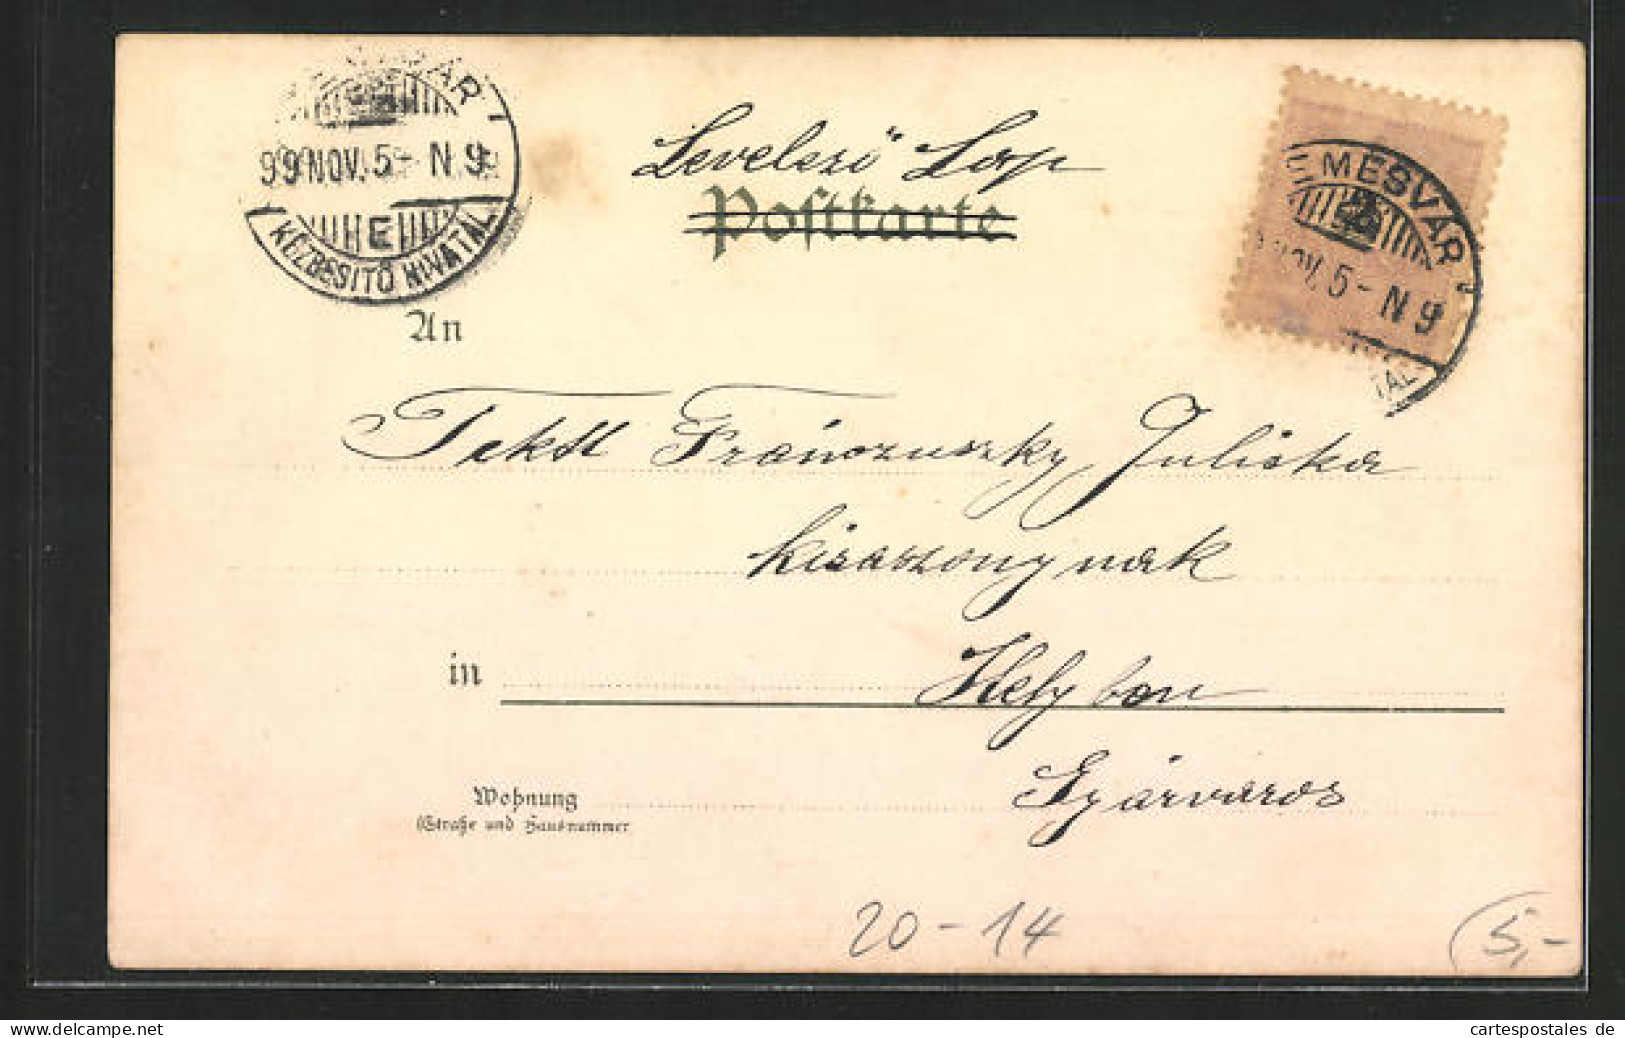 99 NOV. 5 - N 9
E
KÉZBESITŐ HIVATAL
Levelező Lap
Postkarte
EMESVÁR
NOV. 5 - N 9
TAL
An
Tektt Fránczuszky Juliska
kisasszonynak
in Helyben
Gyárváros
Wohnung
(Straße und Hausnummer)
20-14
5,-
cartespostales de